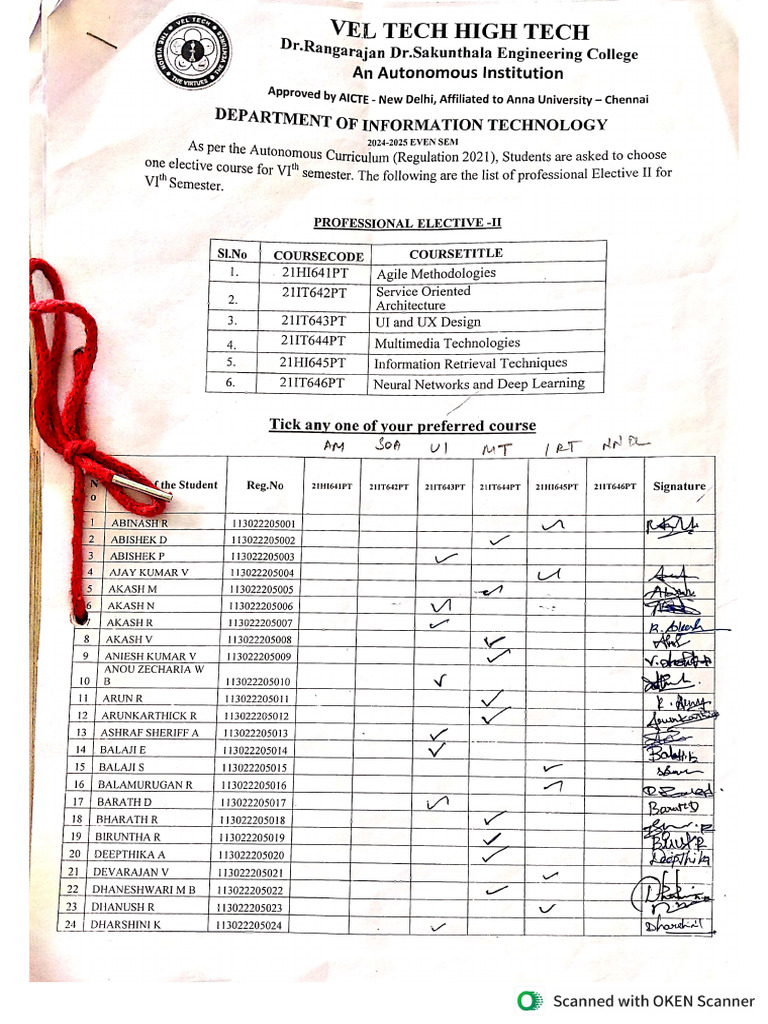 VEL TECH HIGH TECH
Dr.Rangarajan Dr.Sakunthala Engineering College
An Autonomous Institution
Approved by AICTE - New Delhi, Affiliated to Anna University – Chennai
DEPARTMENT OF INFORMATION TECHNOLOGY
2024-2025 EVEN SEM
As per the Autonomous Curriculum (Regulation 2021), Students are asked to choose
one elective course for VIth semester. The following are the list of professional Elective II for
VIth Semester.
PROFESSIONAL ELECTIVE -II
Sl.No COURSECODE COURSETITLE
1. 21HI641PT Agile Methodologies
2. 21IT642PT Service Oriented
Architecture
3. 21IT643PT UI and UX Design
4. 21IT644PT Multimedia Technologies
5. 21HI645PT Information Retrieval Techniques
6. 21IT646PT Neural Networks and Deep Learning
Tick any one of your preferred course
AM SOA UI MT IRT NNDL
No of the Student Reg.No 21HI641PT 21IT642PT 21IT643PT 21IT644PT 21HI645PT 21IT646PT Signature
1 ABINASH R 113022205001 ✓
2 ABISHEK D 113022205002 ✓
3 ABISHEK P 113022205003 ✓
4 AJAY KUMAR V 113022205004 ✓
5 AKASH M 113022205005 ✓
6 AKASH N 113022205006 ✓
7 AKASH R 113022205007 ✓ R. Akash
8 AKASH V 113022205008 ✓
9 ANIESH KUMAR V 113022205009 ✓
ANOU ZECHARIA W
10 B 113022205010 ✓
11 ARUN R 113022205011 ✓
12 ARUNKARTHICK R 113022205012 ✓ Arunkarthick
13 ASHRAF SHERIFF A 113022205013 ✓
14 BALAJI E 113022205014 ✓
15 BALAJI S 113022205015 ✓
16 BALAMURUGAN R 113022205016 ✓
17 BARATH D 113022205017 ✓ Barath D
18 BHARATH R 113022205018 ✓
19 BIRUNTHA R 113022205019 ✓
20 DEEPTHIKA A 113022205020 ✓ Deepthika
21 DEVARAJAN V 113022205021 ✓
22 DHANESHWARI M B 113022205022 ✓
23 DHANUSH R 113022205023 ✓
24 DHARSHINI K 113022205024 ✓
Scanned with OKEN Scanner